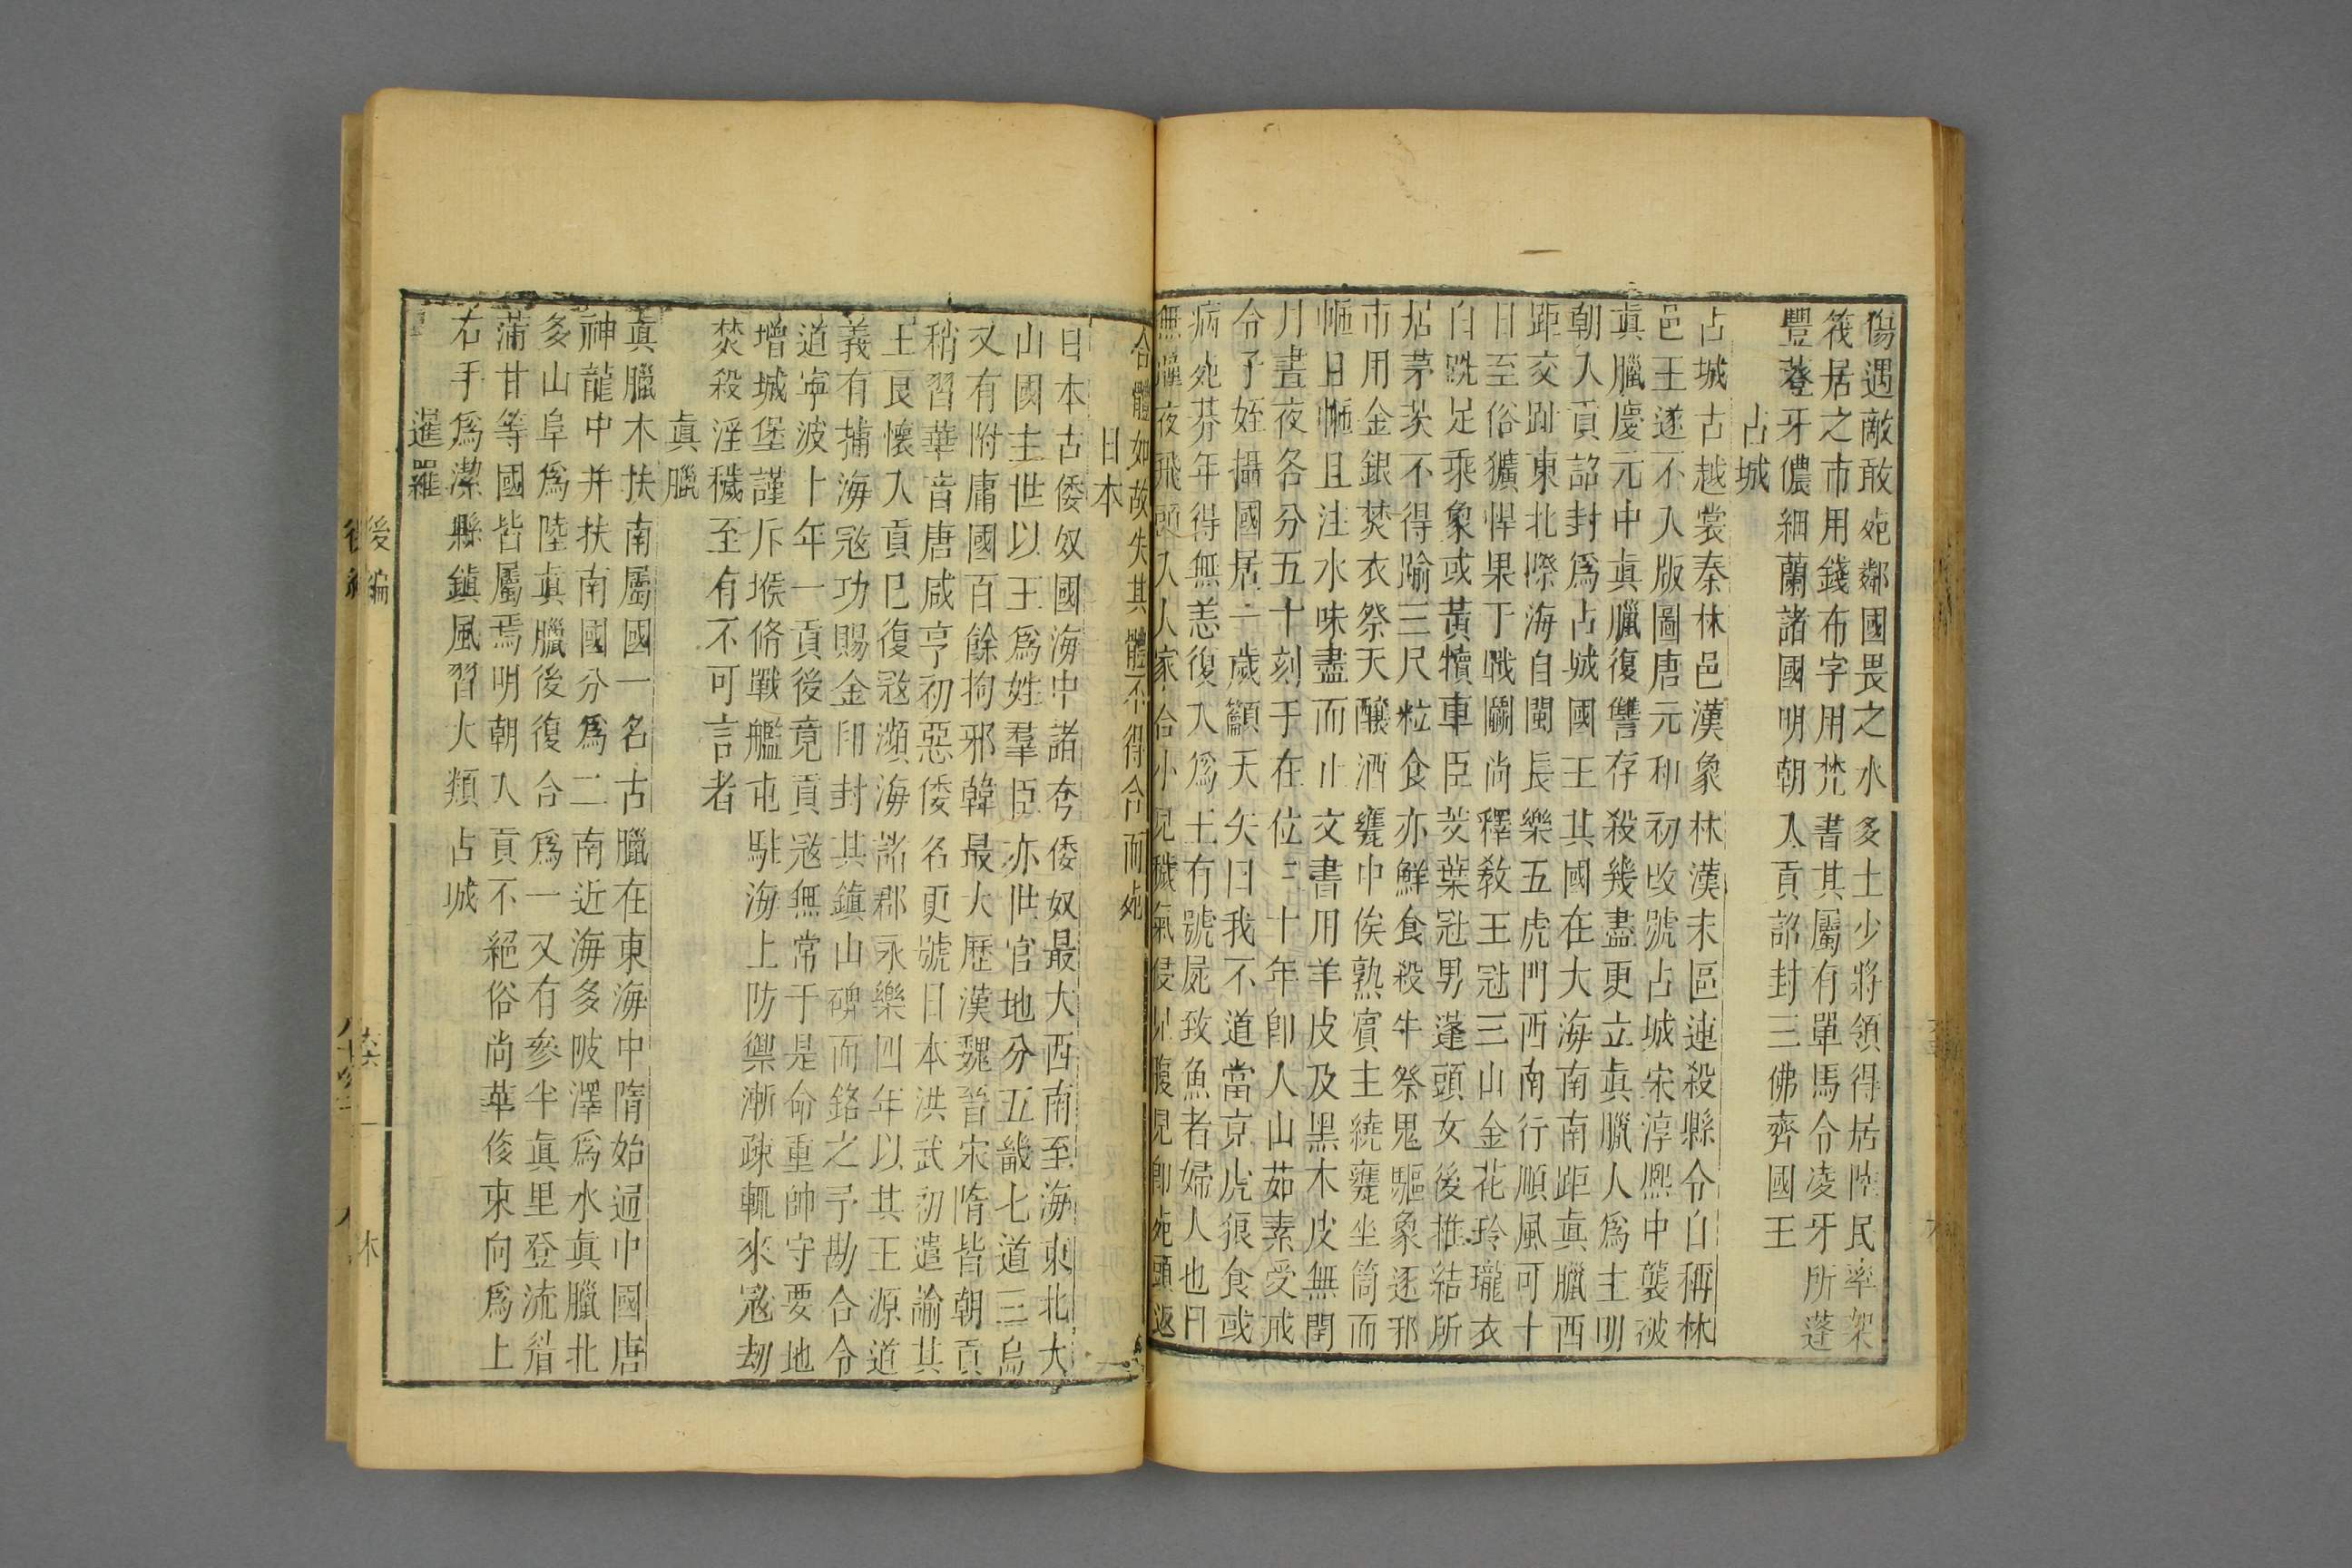 傷遇敵敢死鄰國畏之水多土少將領得居陸民率架
筏居之市用錢布字用梵書其屬有單馬令凌牙所蓬
豐登牙儂細蘭諸國明朝入貢詔封三佛齊國王
占城
占城古越裳秦林邑漢象林漢末區連殺縣令自稱林
邑王遂不入版圖唐元和初改號占城宋淳熙中襲破
真臘慶元中真臘復讐存殺幾盡更立真臘人為主明
朝入貢詔封為占城國王其國在大海南南距真臘西
距交趾東北際海自閩長樂五虎門西南行順風可十
日至俗獷悍果于戰鬬尚釋教王冠三山金花玲瓏衣
白跣足乘象或黃犢車臣茭葉冠男蓬頭女後椎結所
居茅茨不得踰三尺粒食亦鮮食殺牛祭鬼驅象逐邪
市用金銀焚衣祭天釀酒甕中俟熟賓主繞甕坐筒而
咂且咂且注水味盡而止文書用羊皮及黑木皮無閏
月晝夜各分五十刻于在位三十年卽入山茹素受戒
令子姪攝國居一歲籲天矢曰我不道當克虎狼食或
病死朞年得無恙復入為王有號屍致魚者婦人也目
無瞳夜飛頭入人家食小兒穢氣侵兒腹兒卽死頭返
合體如故失其體不得合而死
日本
日本古倭奴國海中諸夸倭奴最大西南至海東北大
山國主世以王為姓羣臣亦世官地分五畿七道三島
又有附庸國百餘拘邪韓最大歷漢魏晉宋隋皆朝貢
稍習華音唐咸亨初惡倭名更號日本洪武初遣諭其
王良懷入貢巳復宼瀕海諸郡永樂四年以其王源道
義有捕海宼功賜金印封其鎮山碑而銘之予勘合令
道寧波十年一貢後竟貢宼無常于是命重帥守要地
增城堡謹斥堠脩戰艦屯駐海上防禦漸疎輒來宼刼
焚殺淫穢至有不可言者
真臘
真臘木扶南屬國一名古臘在東海中隋始通中國唐
神龍中并扶南國分為二南近海多陂澤為水真臘北
多山阜為陸真臘後復合為一又有參半真里登流眉
蒲甘等國皆屬焉明朝入貢不絕俗尚華侈東向為上
右手為潔縣鎮風習大類占城
暹羅
後編